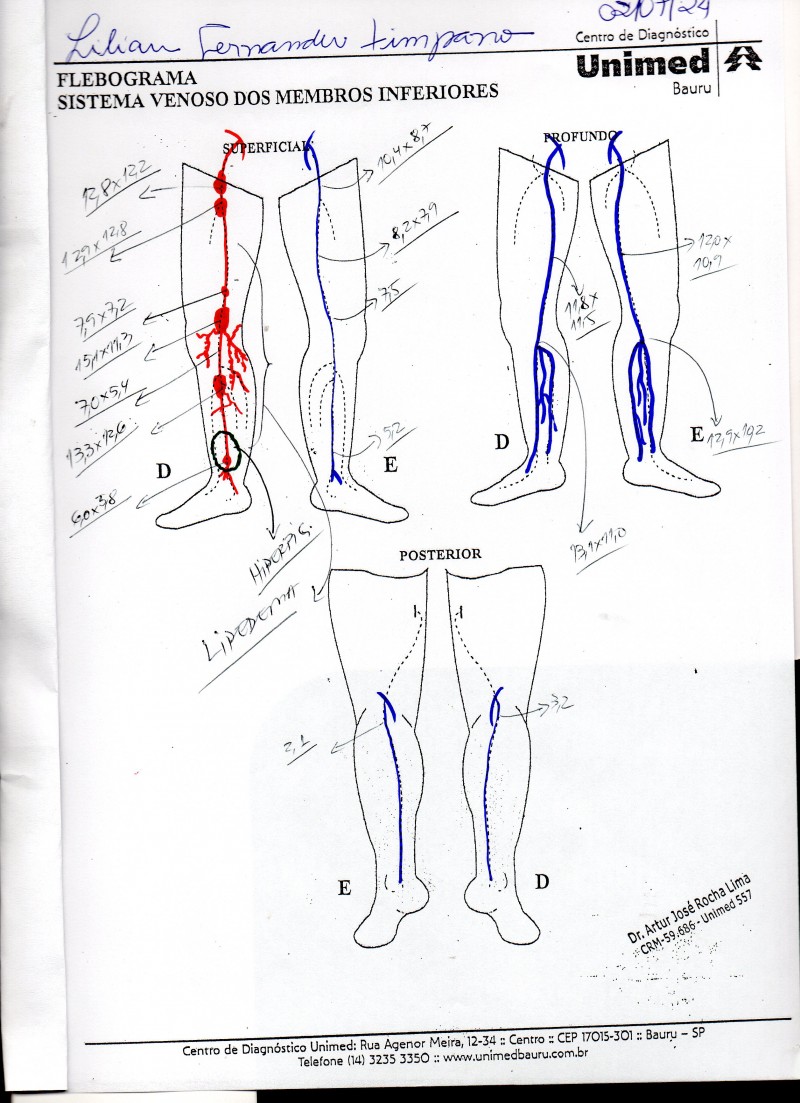 Lilian Fernandes Timpano
02/07/24
Centro de Diagnóstico
Unimed
Bauru
FLEBOGRAMA
SISTEMA VENOSO DOS MEMBROS INFERIORES
SUPERFICIAL
PROFUNDO
12,8x12,2
12,9x12,8
7,9x7,2
15,1x11,3
7,0x5,4
13,3x12,6
6,0x3,8
10,4x8,7
8,2x7,9
7,5
5,2
D
E
HIPERPIG.
LIPEDEMA
11,8x
11,5
12,0x
10,9
12,9x10,2
13,1x11,0
D
E
POSTERIOR
2,1
3,2
E
D
Dr. Artur José Rocha Lima
CRM-59.686 - Unimed 557
Centro de Diagnóstico Unimed: Rua Agenor Meira, 12-34 :: Centro :: CEP 17015-301 :: Bauru – SP
Telefone (14) 3235 3350 :: www.unimedbauru.com.br